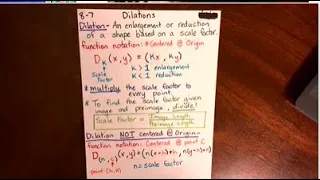 8-7 Dilations
Dilation - An enlargement or reduction
of a shape based on a scale factor.
Function notation: *Centered @ Origin
D K (x, y) = (Kx, Ky)
Scale Factor
K > 1 enlargement
K < 1 reduction
* multiply the scale factor to
every point.
* To find the scale factor given
image and preimage, divide!
Scale Factor = Image Length
Preimage Length
Dilation NOT centered @ Origin
Function notation: Centered @ point C
point (h, k)
n = scale factor